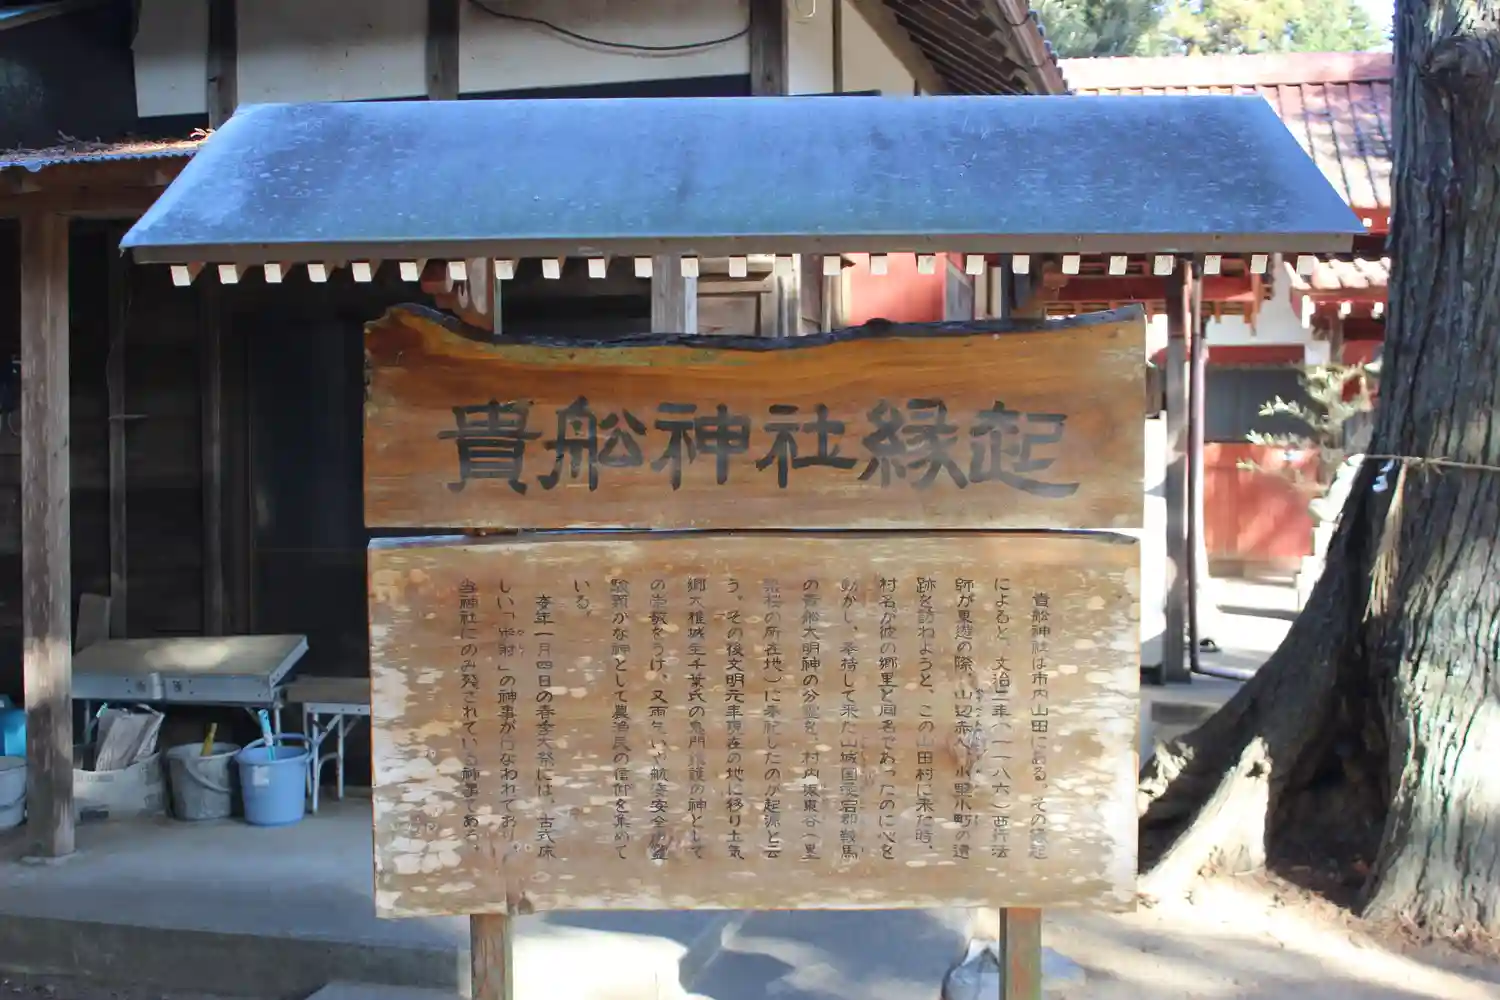 貴船神社縁起
貴船神社は市内山田にある。その縁起
によると、文治二年（一一八六）西行法
師が東遊の際、山辺赤人、小野小町の遺
跡を訪ねようと、この山田村に来た時、
村名が彼の郷里と同名であったのに心を
動かし、奉持して来た山城国愛宕郡鞍馬
の貴船大明神の分霊を、村内
の所在地）に奉祀したのが起源と云
う。その後文明元年現在の地に移り土気
郷の城主千葉氏の鬼門守護の神として
の崇敬をうけ、又雨乞い、航海安全
験顕かな神として農漁民の信仰を集めて
いる。
毎年一月四日の春季大祭には、古式床
しい「歩射」の神事が行なわれており、
当神社にのみ残されている神事である。